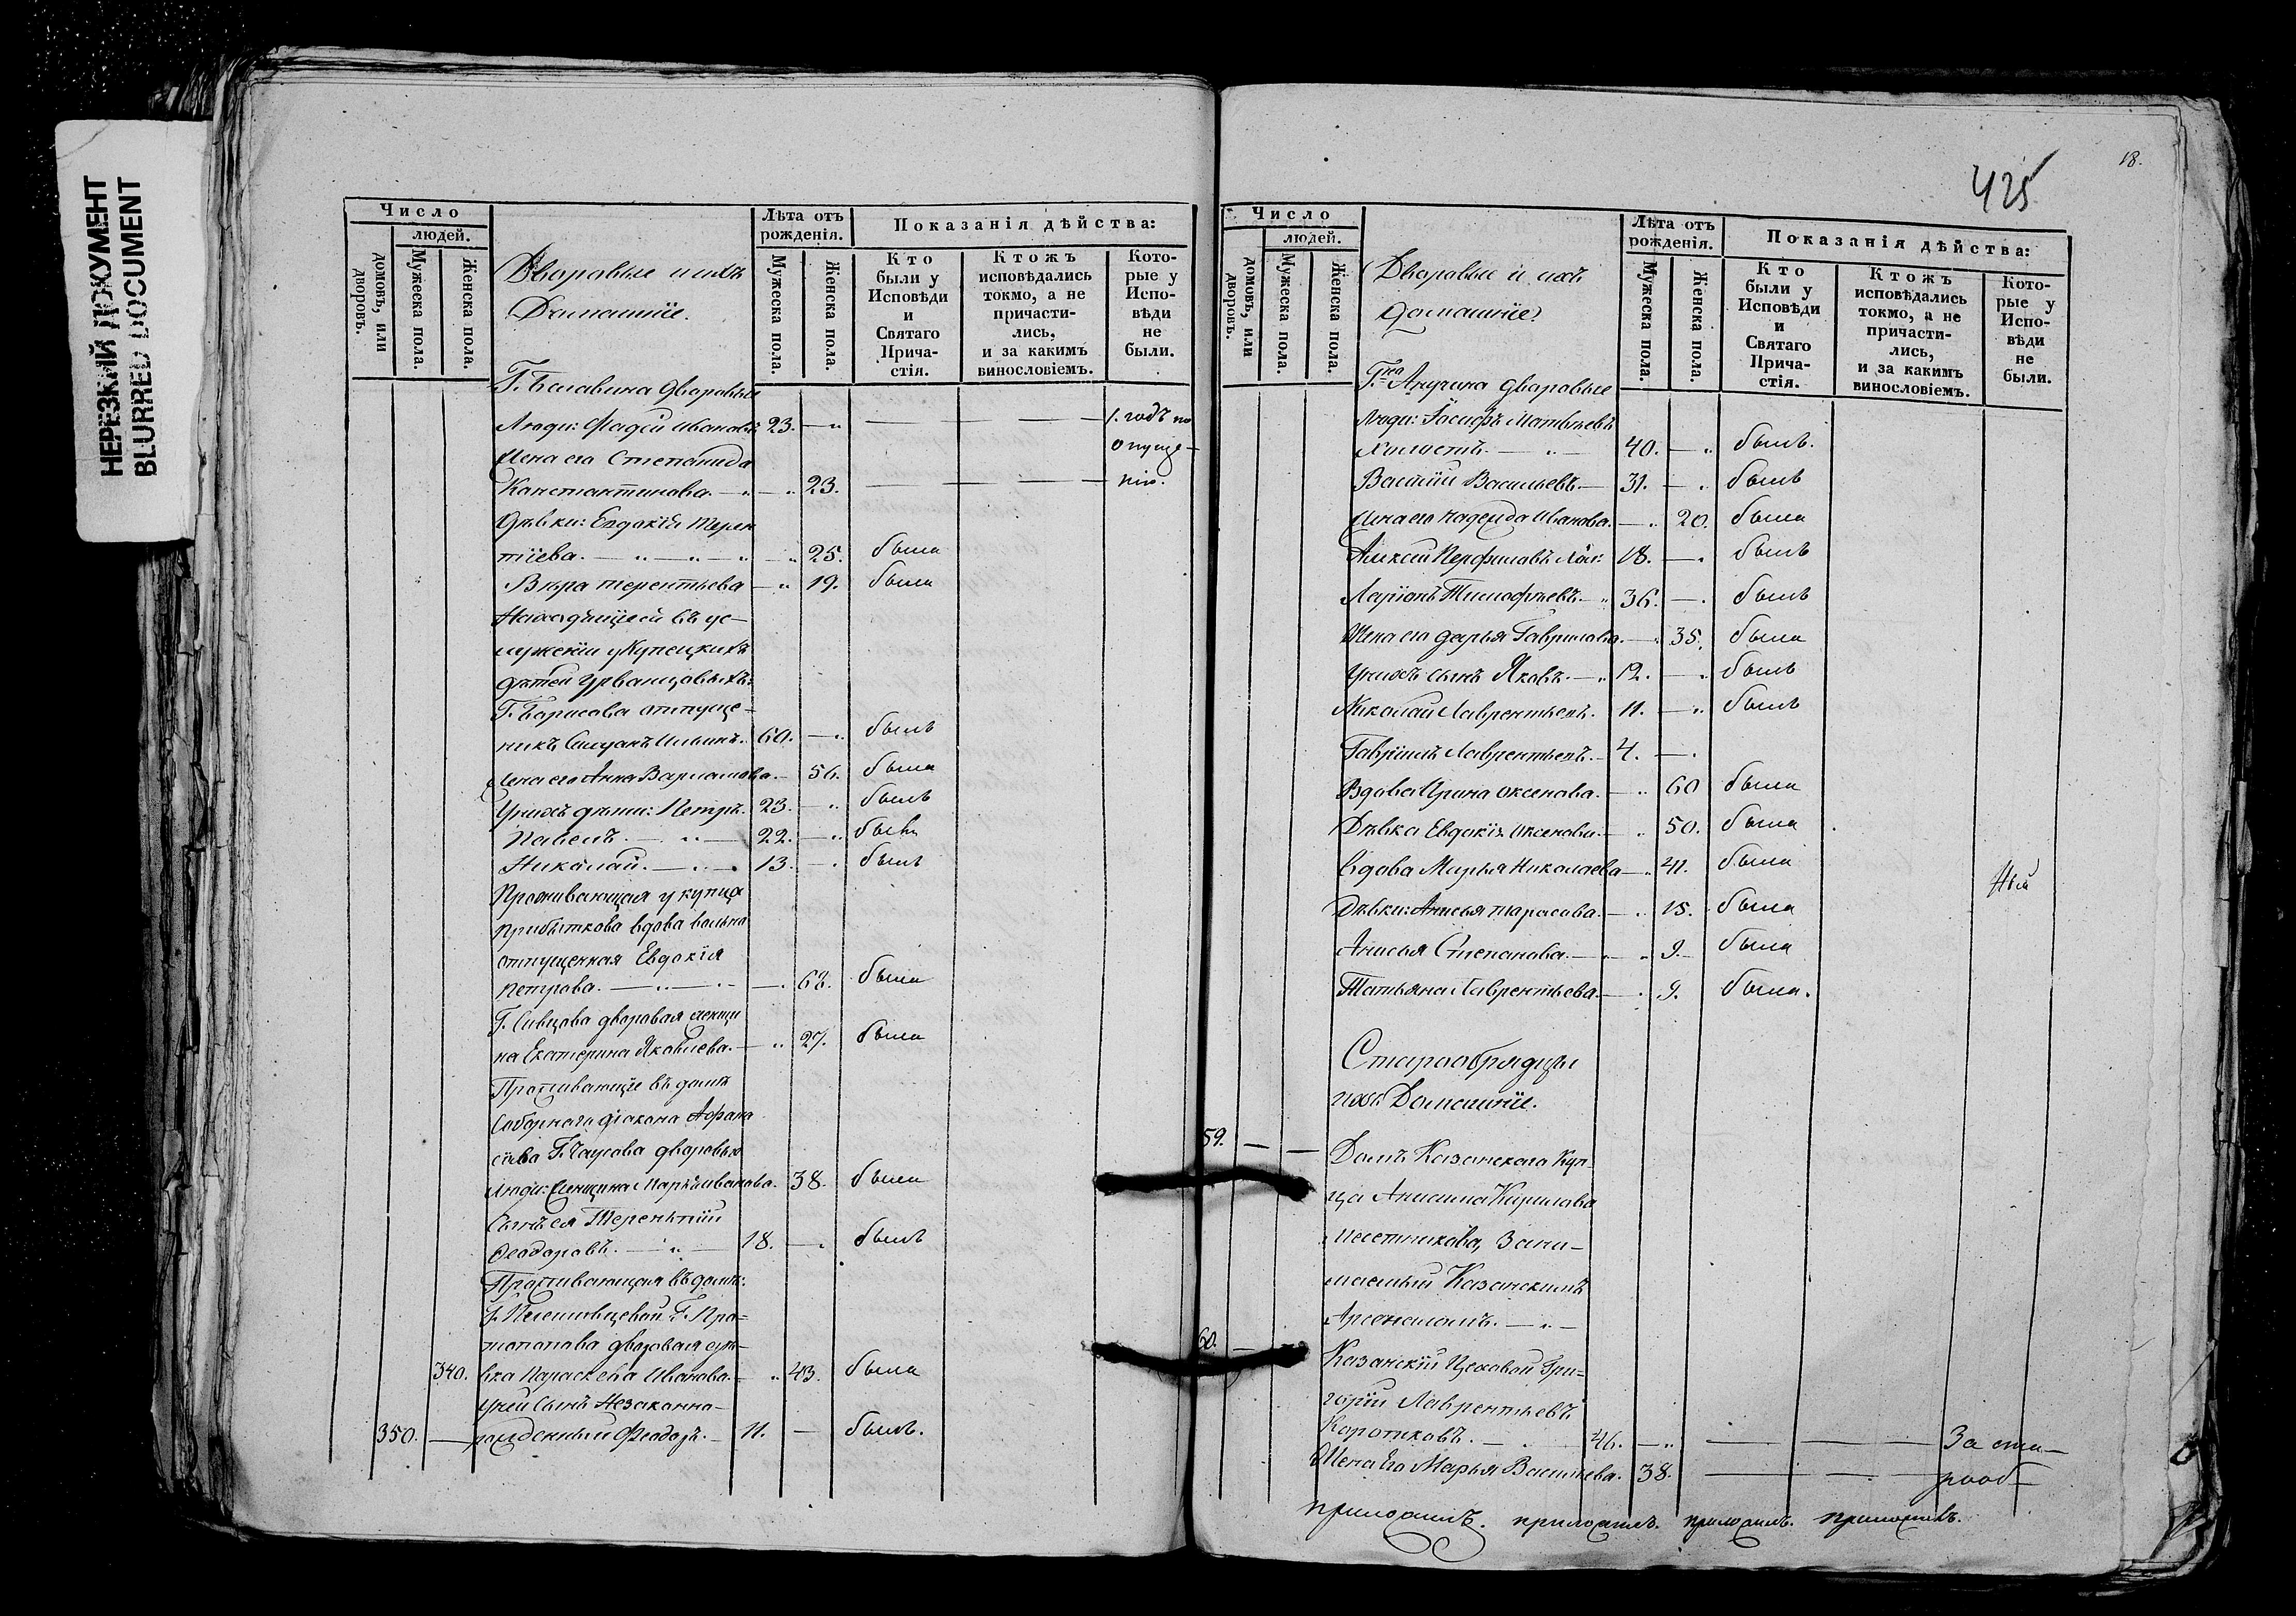 НЕРЕЗКИЙ ДОКУМЕНТ
BLURRED DOCUMENT
Число
людей.
домовъ, или дворовъ.
Мужеска пола.
Женска пола.
Дворовые и ихъ
Домашнїе.
Лѣта отъ рожденія.
Мужеска пола.
Женска пола.
Показанія дѣйства:
Кто были у Исповѣди и Святаго Причастія.
Ктожъ исповѣдались токмо, а не причастились, и за какимъ винословіемъ.
Которые у Исповѣди не были.
дворовые
Люди: Фадей Ивановъ 23. — 1. годъ по
Жена его Степанида опуще-
Константинова. — 23. — нїю.
Дѣвки: Евдокїя Терен
тїева. — 25. была
Вѣра Терентьева — 19. была
Находящїеся въ ус-
луженїи у Купецкихъ
дѣтей Урванцовыхъ:
Г. Борисова отпуще-
никъ Ильинъ. 60. — былъ
Жена его Анна Варламова. — 56. была
У нихъ дѣти: Петръ. 23. — былъ
Павелъ. — 22. — былъ
Николай. — 13. — былъ
Проживающая у купца
Прибыткова вдова вольно
отпущенная Евдокїя
Петрова. — 62. была
Г. Сивцова дворовая женщи
на Екатерина Яковлева. — 27. была
Проживающїе въ домѣ
Соборнаго дїакона Афана
сїева Г. Чаусова дворовые
Люди: Женщина Марья Иванова. 38. была
Сынъ ея Терентїй
Феодоровъ. — 18. — былъ
Проживающая въ домѣ:
Г. Про-
топопова дворовая дѣ-
340. вка Параскева Иванова. — 43. была
У ней Сынъ Незаконно-
350. — рожденный Феодоръ. — 11. — былъ.
425
18.
Число
людей.
домовъ, или дворовъ.
Мужеска пола.
Женска пола.
Дворовые и ихъ
домашнїе
Лѣта отъ рожденія.
Мужеска пола.
Женска пола.
Показанія дѣйства:
Кто были у Исповѣди и Святаго Причастія.
Ктожъ исповѣдались токмо, а не причастились, и за какимъ винословіемъ.
Которые у Исповѣди не были.
Анучина дворовые
Люди: Їосифъ Матвѣевъ
холостъ. — 40. — былъ.
Васїлїй Васильевъ. — 31. — былъ
Жена его Надежда Иванова. — 20. была
Алексей Перфиловъ Хол: 18. — былъ
Ларїонъ Тимофѣевъ. — 36. — былъ
Жена его Дарья Гаврилова. — 35. была
У нихъ сынъ Яковъ. — 12. — былъ
Николай Лаврентьевъ. 11. — былъ
Гаврїилъ Лаврентьевъ. — 4. —
Вдова Ирина Оксенова. — 60 была
Дѣвка Евдокїя Оксенова. — 50. была
Вдова Марья Николаева — 41. была
Дѣвки: Анисья Тарасова. — 15. была
Анисья Степанова. — 9. — была
Татьяна Лаврентьева. — 9. была.
Старообрядцы
ихъ Домашнїе.
59. — — Домъ Казанскаго Куп-
ца Анисима Кирилова
Шестникова, Зани-
маемый Казанскимъ
Арсеналомъ. —
60. — Казанскїй Цеховой Гри-
горїй Лаврентьевъ
Коротковъ. — 46. — За ста-
Жена Его Марья Васильева. 38. — рооб-
приложилъ. приложилъ. приложилъ. приложилъ.